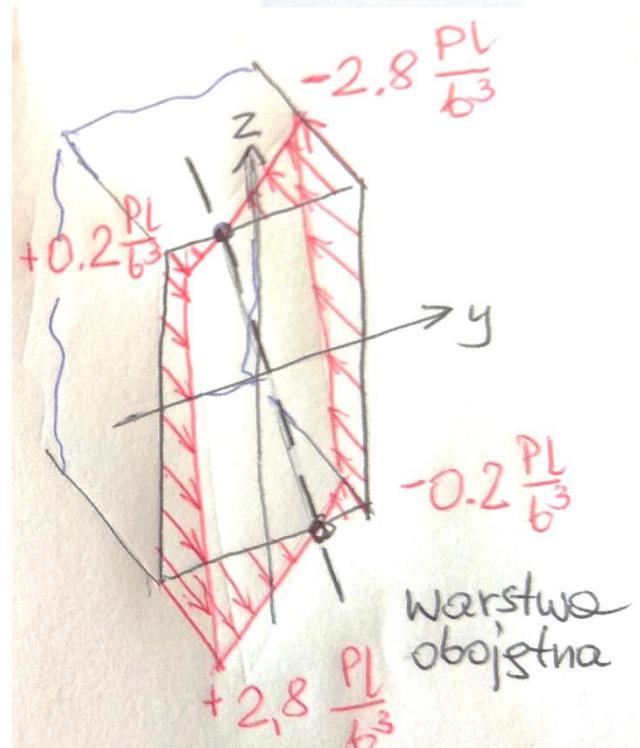 -2.8 Pl/b³
z
+0.2 Pl/b³
y
-0.2 Pl/b³
warstwa
obojętna
+2,8 Pl/b³